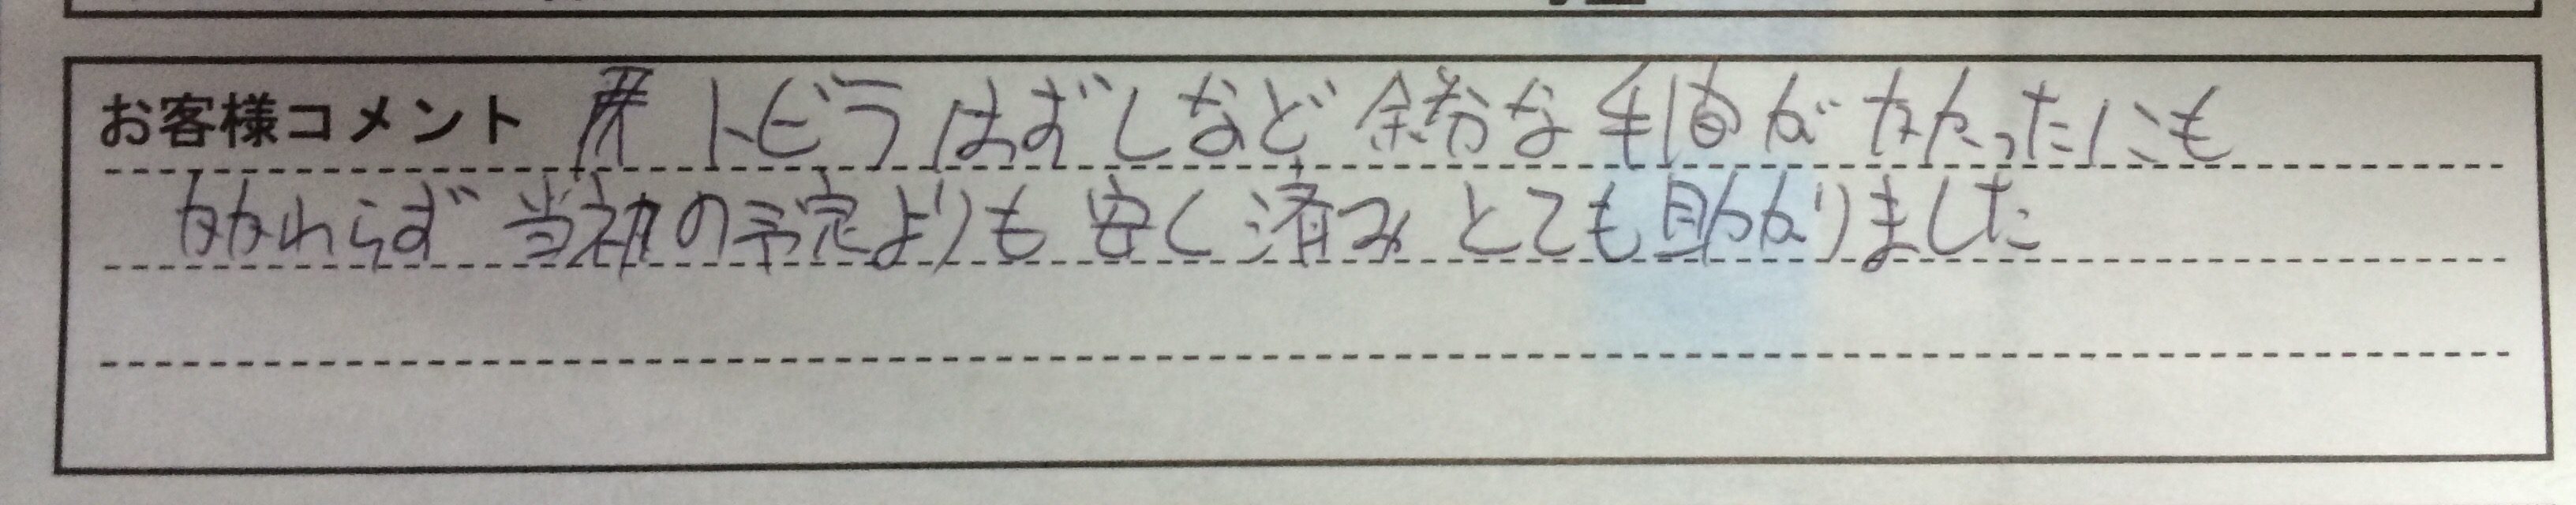 お客様コメント トビラはずしなど余分な手間がかかったにも
かかわらず当初の予定よりも安く済みとても助かりました